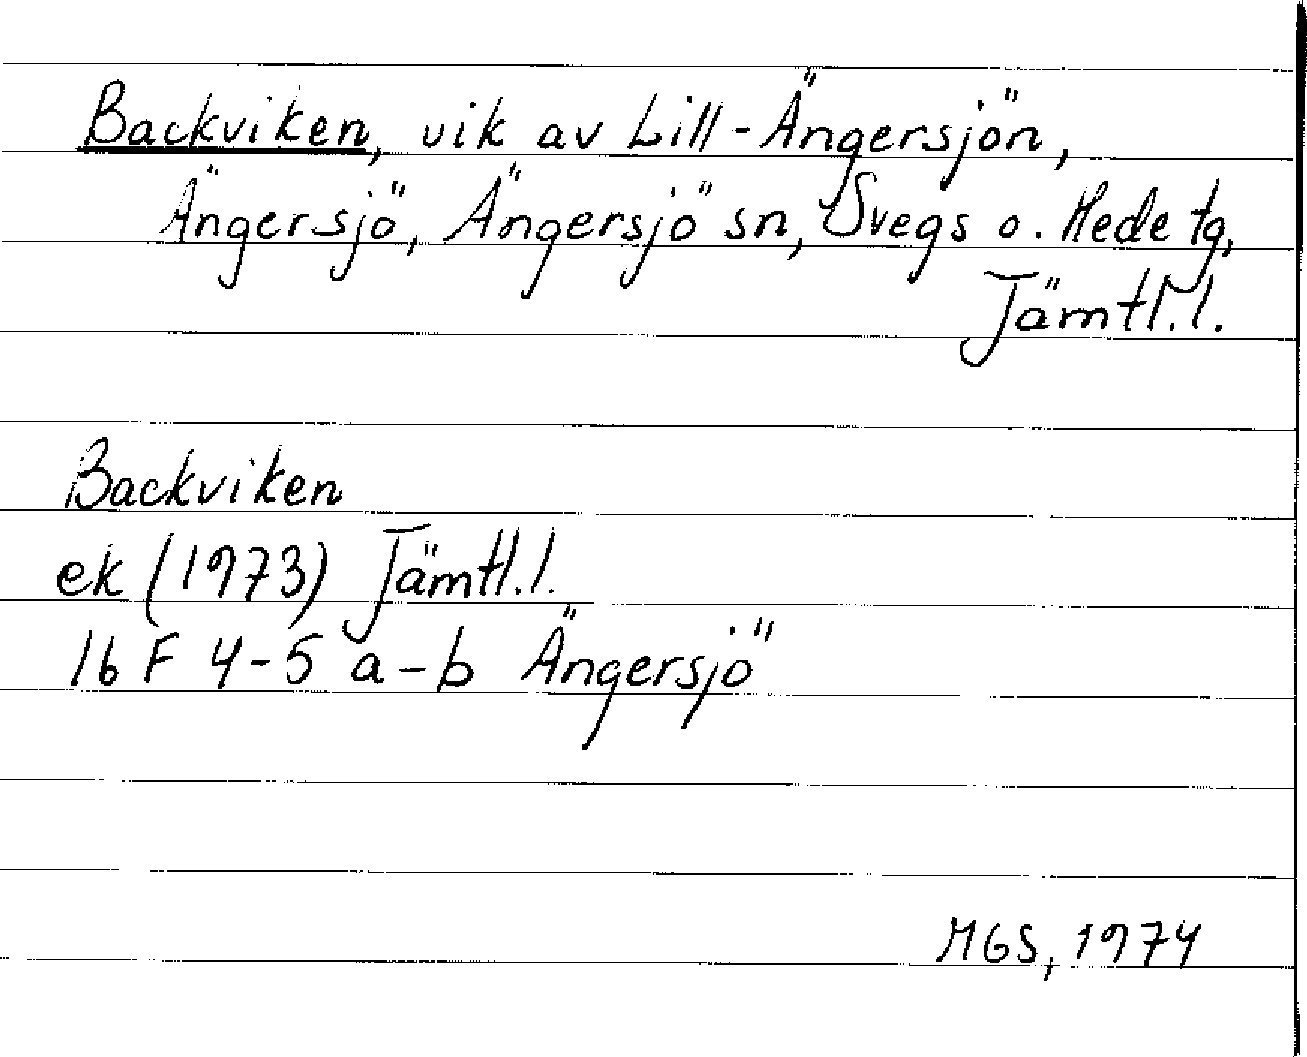 Backviken, vik av Lill-Ängersjön,
Ängersjö, Ängersjö sn, Svegs o. Hede tg,
Jämtl.l.
Backviken
ek (1973) Jämtl.l.
16 F 4-5 a-b Ängersjö
MGS, 1974